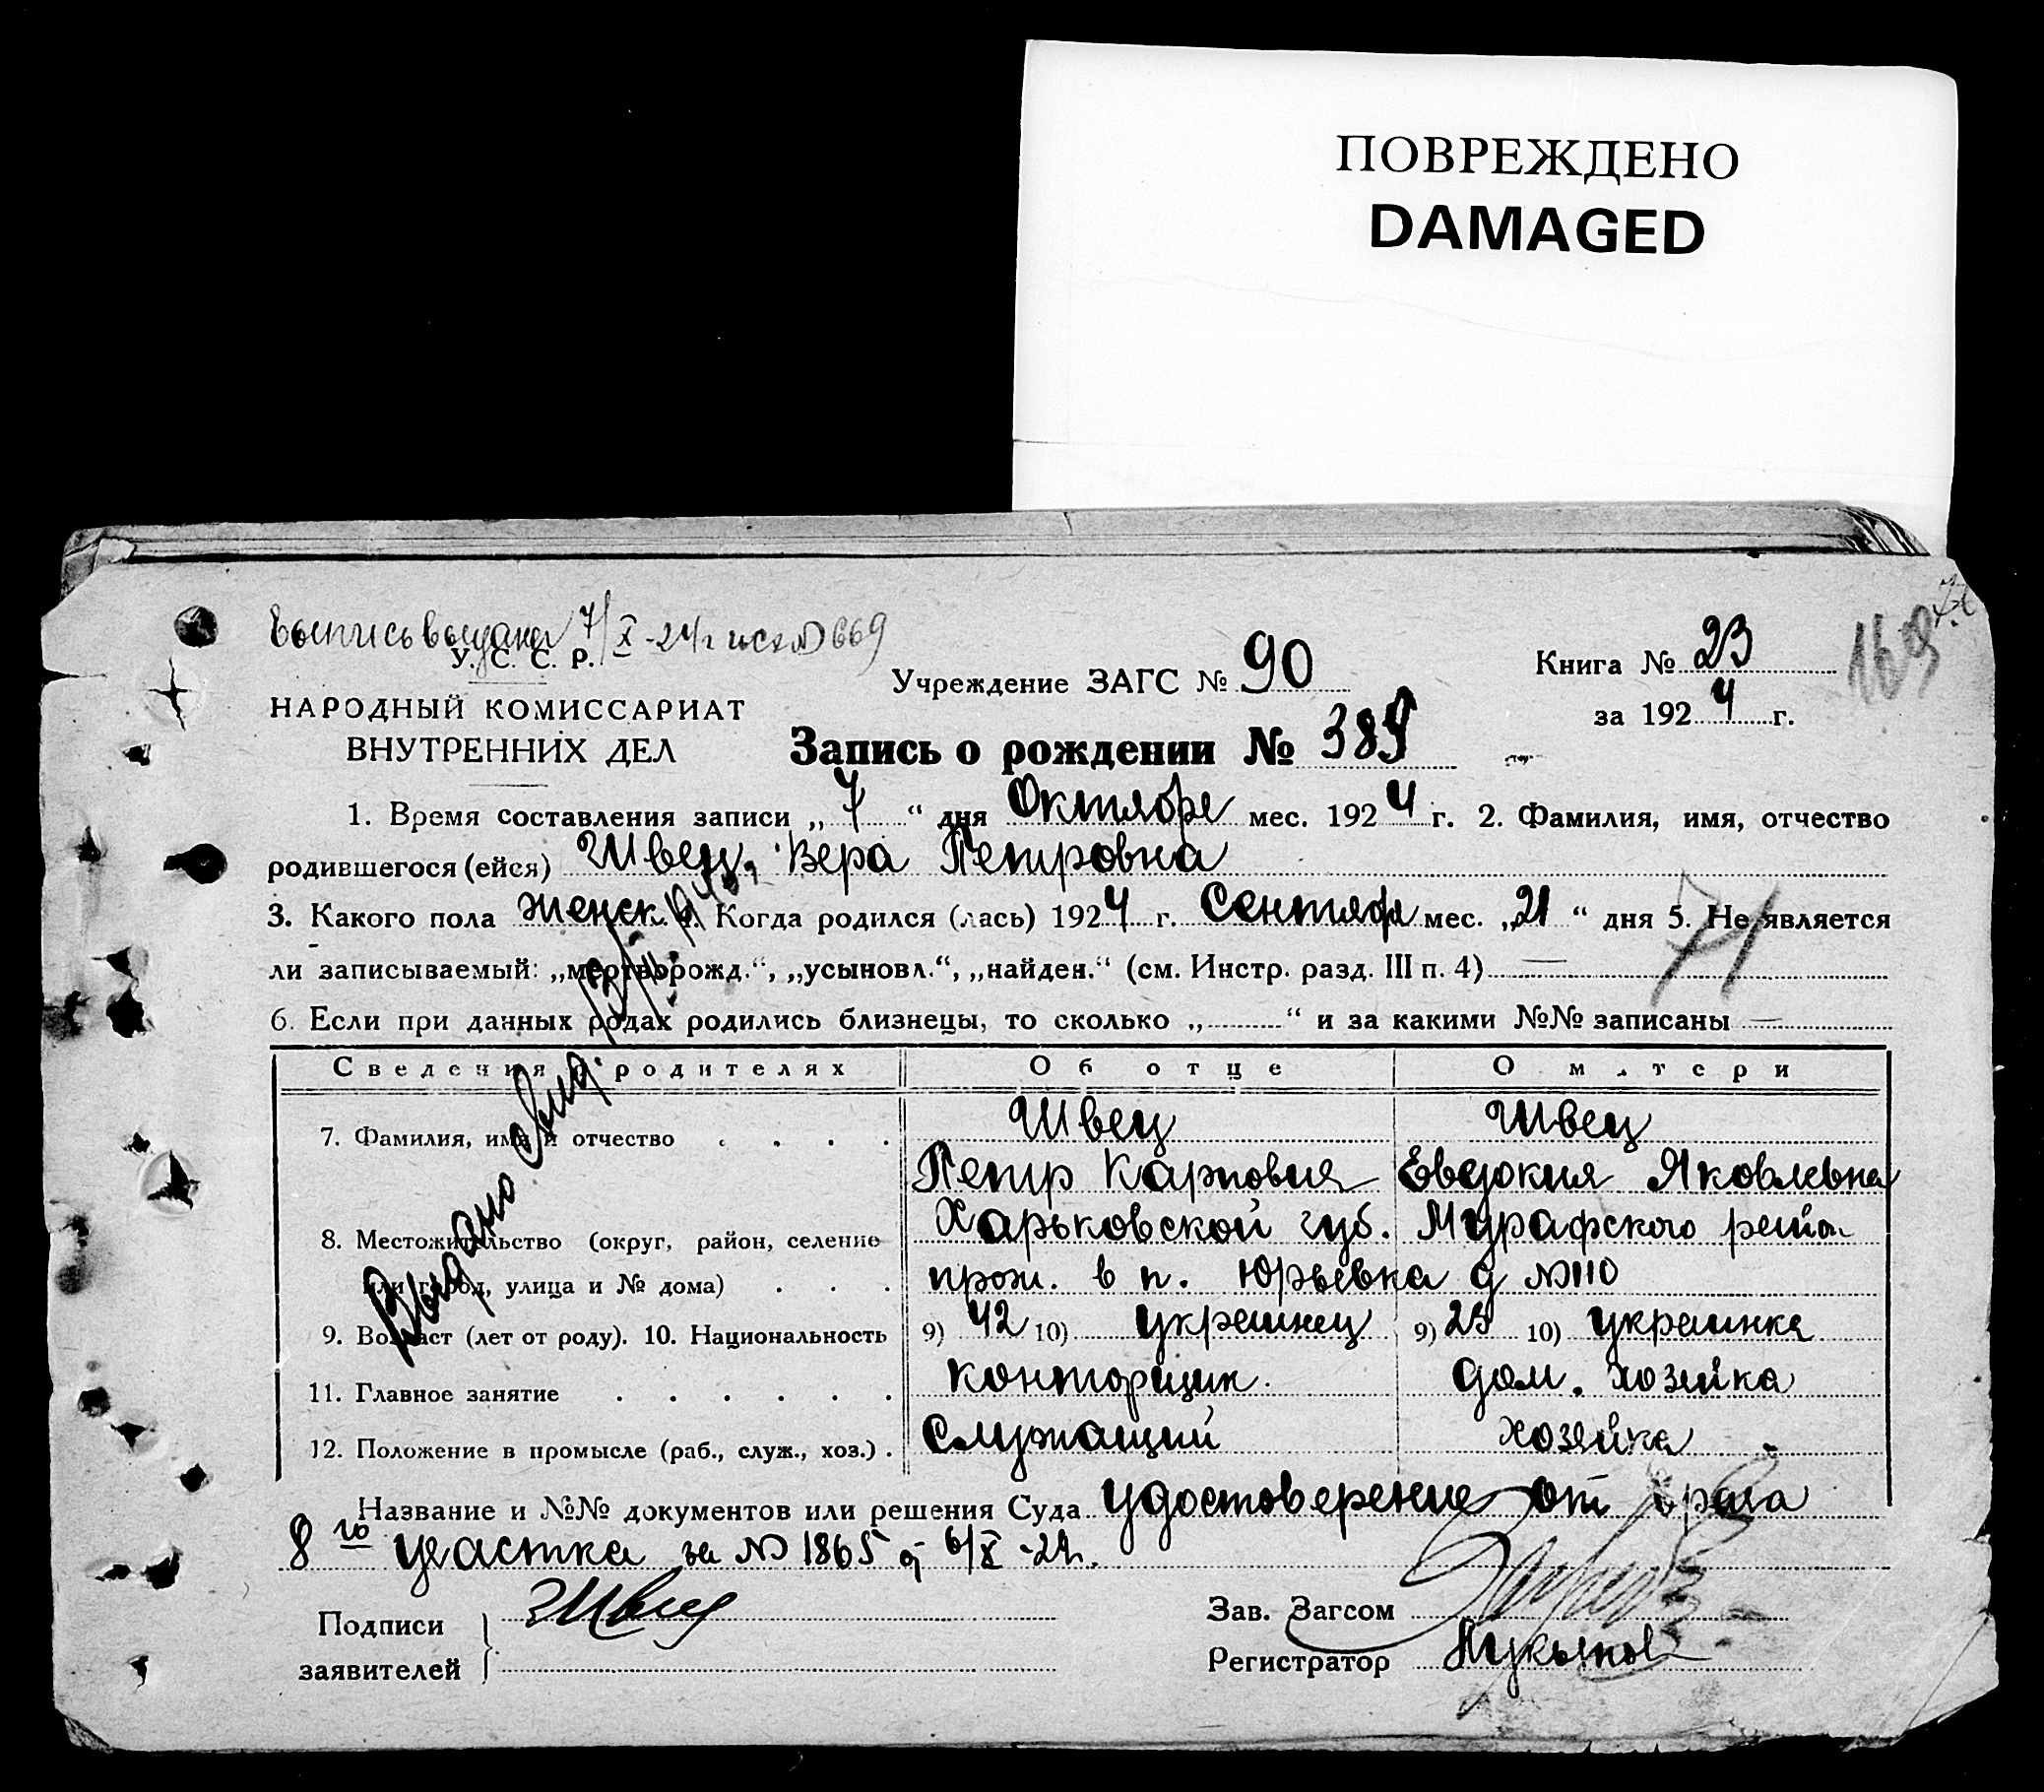 ПОВРЕЖДЕНО
DAMAGED
Выпись выдана 7/X-24г исх № 669
У. С. С. Р.
НАРОДНЫЙ КОМИССАРИАТ
ВНУТРЕННИХ ДЕЛ
Учреждение ЗАГС № 90
Книга № 23
за 1924 г.
169
Запись о рождении № 389
1. Время составления записи „7“ дня Октября мес. 1924 г. 2. Фамилия, имя, отчество
родившегося (ейся) Швец, Вера Петровна
3. Какого пола женск. 4. Когда родился (лась) 1924 г. Сентября мес. „21“ дня 5. Не является
ли записываемый: „мертворожд.“, „усыновл.“, „найден.“ (см. Инстр. разд. III п. 4) —
71
6. Если при данных родах родились близнецы, то сколько „ “ и за какими №№ записаны —
Выдано Свид.
Сведения о родителях Об отце О матери
7. Фамилия, имя и отчество Швец Швец
Петр Карпович Евдокия Яковлевна
8. Местожительство (округ, район, селение Харьковской губ. Мурафского район
или город, улица и № дома) прож. в п. Юрьевка д №110
9. Возраст (лет от роду). 10. Национальность 9) 42 10) украинец 9) 25 10) украинка
11. Главное занятие конторщик. дом. хозяйка
12. Положение в промысле (раб., служ., хоз.) Служащий хозяйка
Название и №№ документов или решения Суда удостоверение от врача
8го участка за № 1865 от 6/X-24г.
Подписи
заявителей
Швец
Зав. Загсом
Регистратор